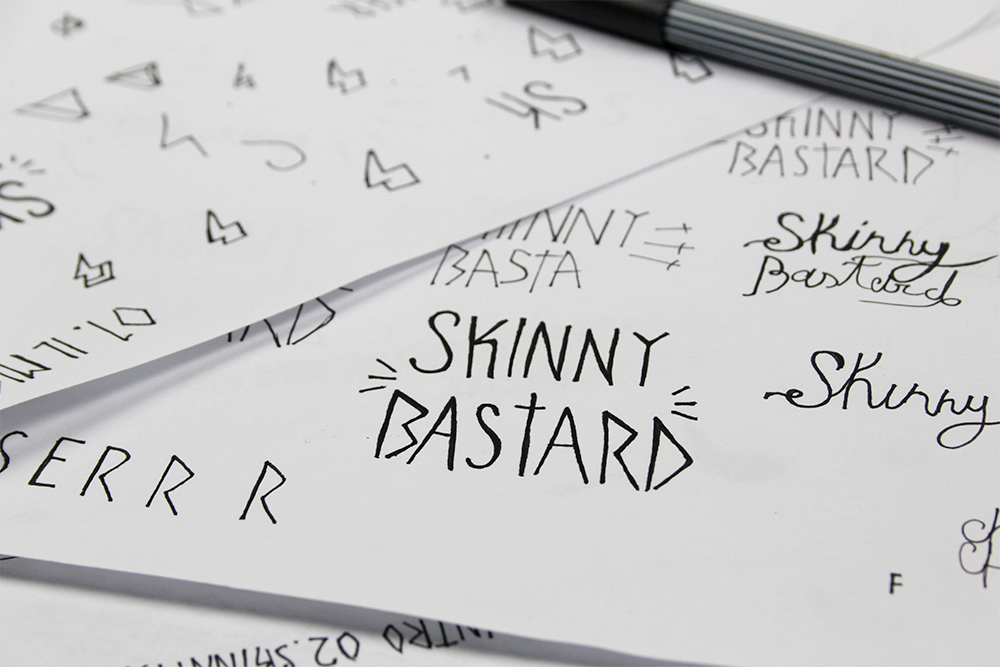 SKINNY
BASTARD
SKINNY
BASTA
Skinny
Bastard
SKINNY
BASTARD
Skinny
SERR R
F
INTRO 02.SKINN